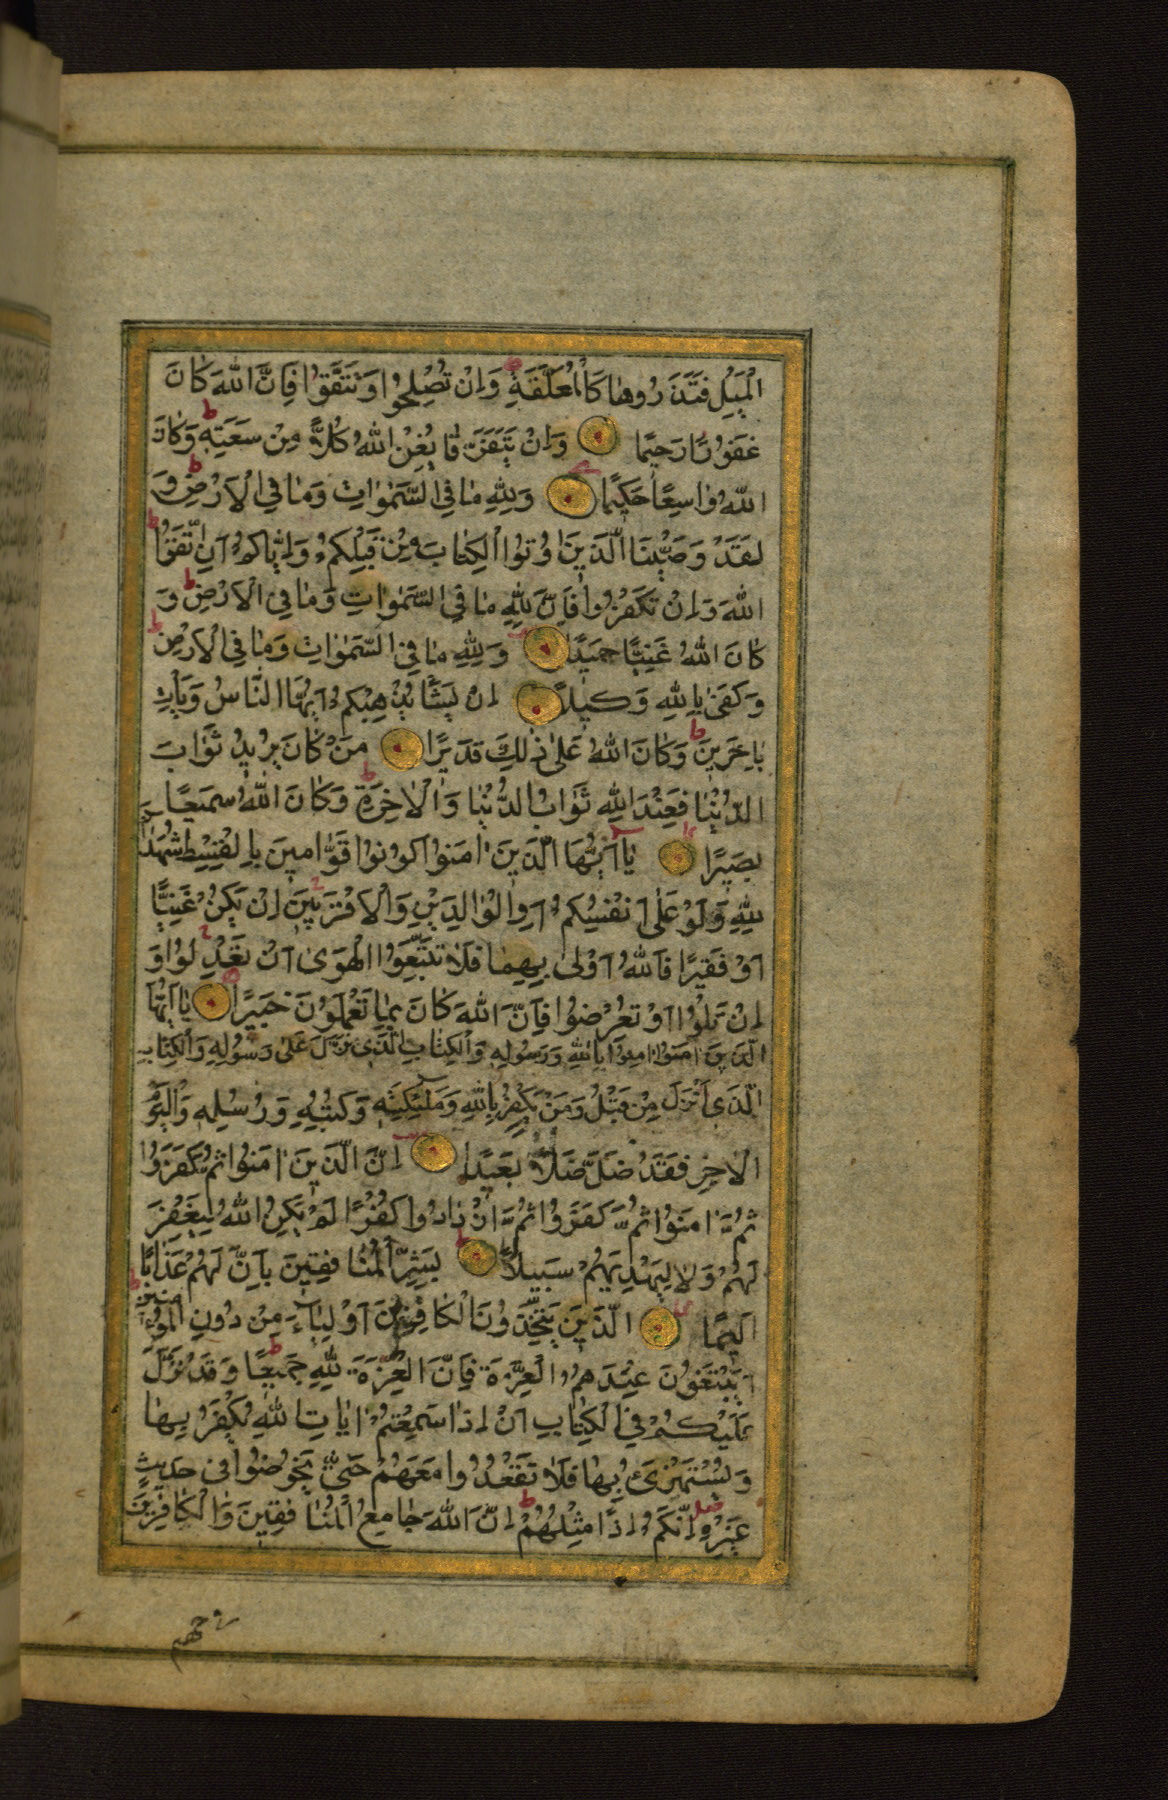 الْمَيْلِ فَتَذَرُوهَا كَالْمُعَلَّقَةِ وَاِنْ تُصْلِحُوا وَتَتَّقُوا فَاِنَّ اللّٰهَ كَانَ
غَفُورًا رَحِيمًا وَاِنْ يَتَفَرَّقَا يُغْنِ اللّٰهُ كُلًّا مِنْ سَعَتِهِ وَكَانَ
اللّٰهُ وَاسِعًا حَكِيمًا وَلِلّٰهِ مَا فِي السَّمٰوَاتِ وَمَا فِي الْاَرْضِ وَ
لَقَدْ وَصَّيْنَا الَّذِينَ اُوتُوا الْكِتَابَ مِنْ قَبْلِكُمْ وَاِيَّاكُمْ اَنِ اتَّقُوا
اللّٰهَ وَاِنْ تَكْفُرُوا فَاِنَّ لِلّٰهِ مَا فِي السَّمٰوَاتِ وَمَا فِي الْاَرْضِ وَ
كَانَ اللّٰهُ غَنِيًّا حَمِيدًا وَلِلّٰهِ مَا فِي السَّمٰوَاتِ وَمَا فِي الْاَرْضِ
وَكَفَىٰ بِاللّٰهِ وَكِيلًا اِنْ يَشَأْ يُذْهِبْكُمْ اَيُّهَا النَّاسُ وَيَأْتِ
بِاٰخَرِينَ وَكَانَ اللّٰهُ عَلَىٰ ذٰلِكَ قَدِيرًا مَنْ كَانَ يُرِيدُ ثَوَابَ
الدُّنْيَا فَعِنْدَ اللّٰهِ ثَوَابُ الدُّنْيَا وَالْاٰخِرَةِ وَكَانَ اللّٰهُ سَمِيعًا
بَصِيرًا يَا اَيُّهَا الَّذِينَ اٰمَنُوا كُونُوا قَوَّامِينَ بِالْقِسْطِ شُهَدَاءَ
لِلّٰهِ وَلَوْ عَلَىٰ اَنْفُسِكُمْ اَوِ الْوَالِدَيْنِ وَالْاَقْرَبِينَ اِنْ يَكُنْ غَنِيًّا
اَوْ فَقِيرًا فَاللّٰهُ اَوْلَىٰ بِهِمَا فَلَا تَتَّبِعُوا الْهَوَىٰ اَنْ تَعْدِلُوا وَ
اِنْ تَلْوُوا اَوْ تُعْرِضُوا فَاِنَّ اللّٰهَ كَانَ بِمَا تَعْمَلُونَ خَبِيرًا يَا اَيُّهَا
الَّذِينَ اٰمَنُوا اٰمِنُوا بِاللّٰهِ وَرَسُولِهِ وَالْكِتَابِ الَّذِي نَزَّلَ عَلَىٰ رَسُولِهِ وَالْكِتَابِ
الَّذِي اَنْزَلَ مِنْ قَبْلُ وَمَنْ يَكْفُرْ بِاللّٰهِ وَمَلٰئِكَتِهِ وَكُتُبِهِ وَرُسُلِهِ وَالْيَوْمِ
الْاٰخِرِ فَقَدْ ضَلَّ ضَلَالًا بَعِيدًا اِنَّ الَّذِينَ اٰمَنُوا ثُمَّ كَفَرُوا
ثُمَّ اٰمَنُوا ثُمَّ كَفَرُوا ثُمَّ ازْدَادُوا كُفْرًا لَمْ يَكُنِ اللّٰهُ لِيَغْفِرَ
لَهُمْ وَلَا لِيَهْدِيَهُمْ سَبِيلًا بَشِّرِ الْمُنَافِقِينَ بِاَنَّ لَهُمْ عَذَابًا
اَلِيمًا الَّذِينَ يَتَّخِذُونَ الْكَافِرِينَ اَوْلِيَاءَ مِنْ دُونِ الْمُؤْمِنِينَ
اَيَبْتَغُونَ عِنْدَهُمُ الْعِزَّةَ فَاِنَّ الْعِزَّةَ لِلّٰهِ جَمِيعًا وَقَدْ نَزَّلَ
عَلَيْكُمْ فِي الْكِتَابِ اَنْ اِذَا سَمِعْتُمْ اٰيَاتِ اللّٰهِ يُكْفَرُ بِهَا
وَيُسْتَهْزَئُ بِهَا فَلَا تَقْعُدُوا مَعَهُمْ حَتّٰى يَخُوضُوا فِي حَدِيثٍ
غَيْرِهِ اِنَّكُمْ اِذًا مِثْلُهُمْ اِنَّ اللّٰهَ جَامِعُ الْمُنَافِقِينَ وَالْكَافِرِينَ
في جهنم